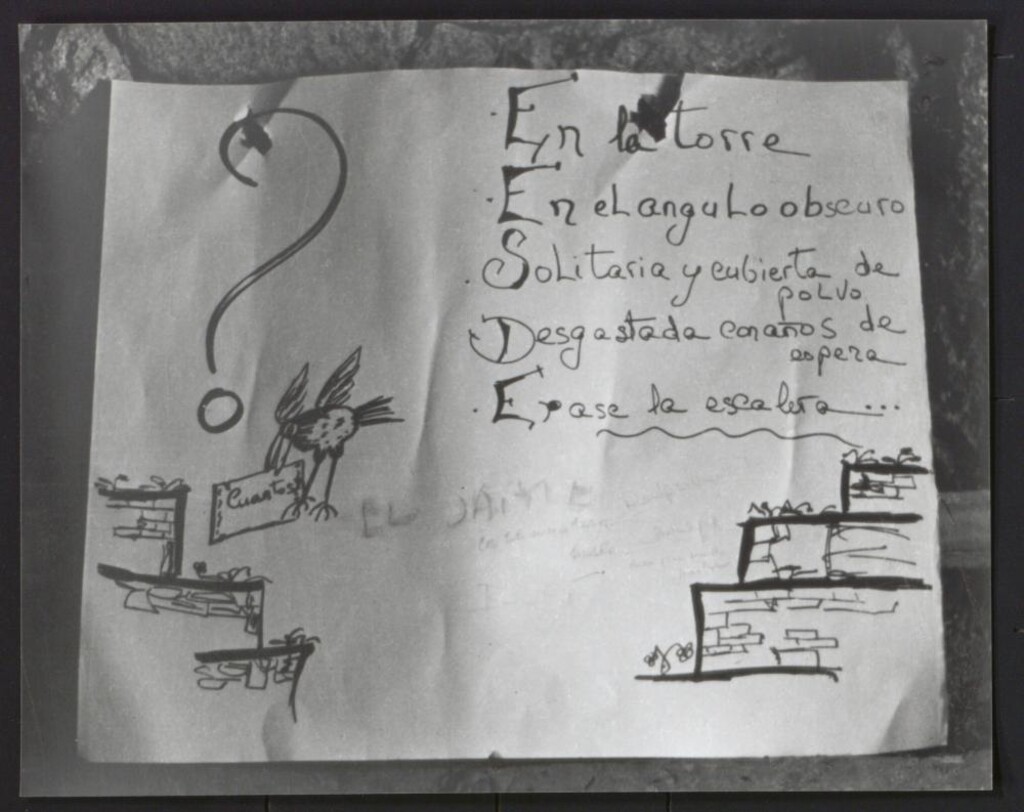 En la torre
En el angulo obscuro
Solitaria y cubierta de
polvo
Desgastada con años de
espera
Erase la escalera...
Cuantos
EL JAIME